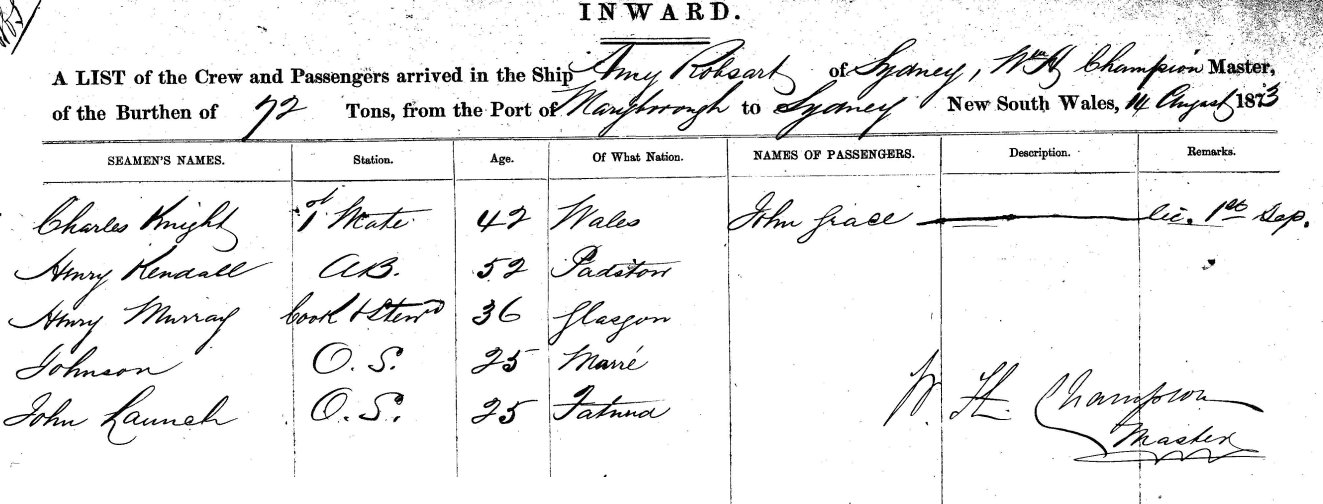 INWARD.
A LIST of the Crew and Passengers arrived in the Ship Amy Robsart of Sydney, Wm H Champion Master,
of the Burthen of 72 Tons, from the Port of Maryborough to Sydney New South Wales, 14 August 1873
SEAMEN'S NAMES. Station. Age. Of What Nation. NAMES OF PASSENGERS. Description. Remarks.
Charles Knight 1st Mate 42 Wales John Grace lic. 1st Sep.
Henry Kendall A.B. 52 Padston
Henry Murray Cook & Stewd 36 Glasgow
Johnson O. S. 25 Marré
John Launch O. S. 25 Tatnna
W. H. Champion
Master